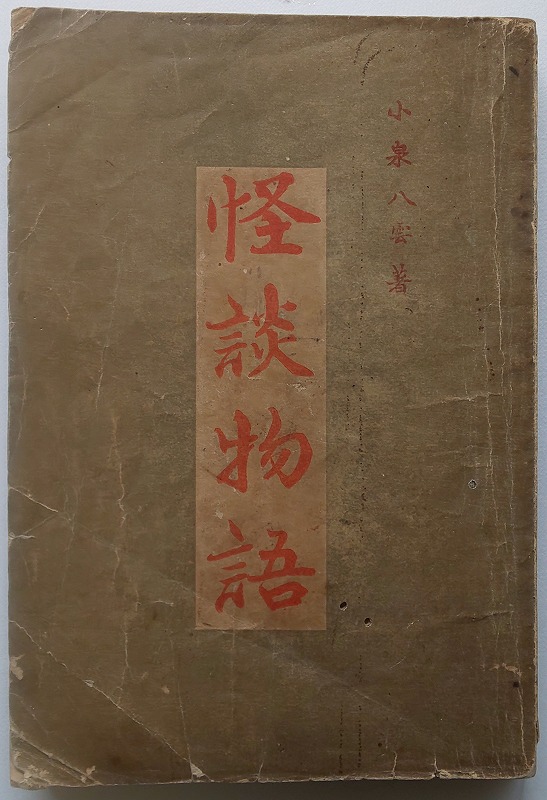 小泉八雲著
怪談物語